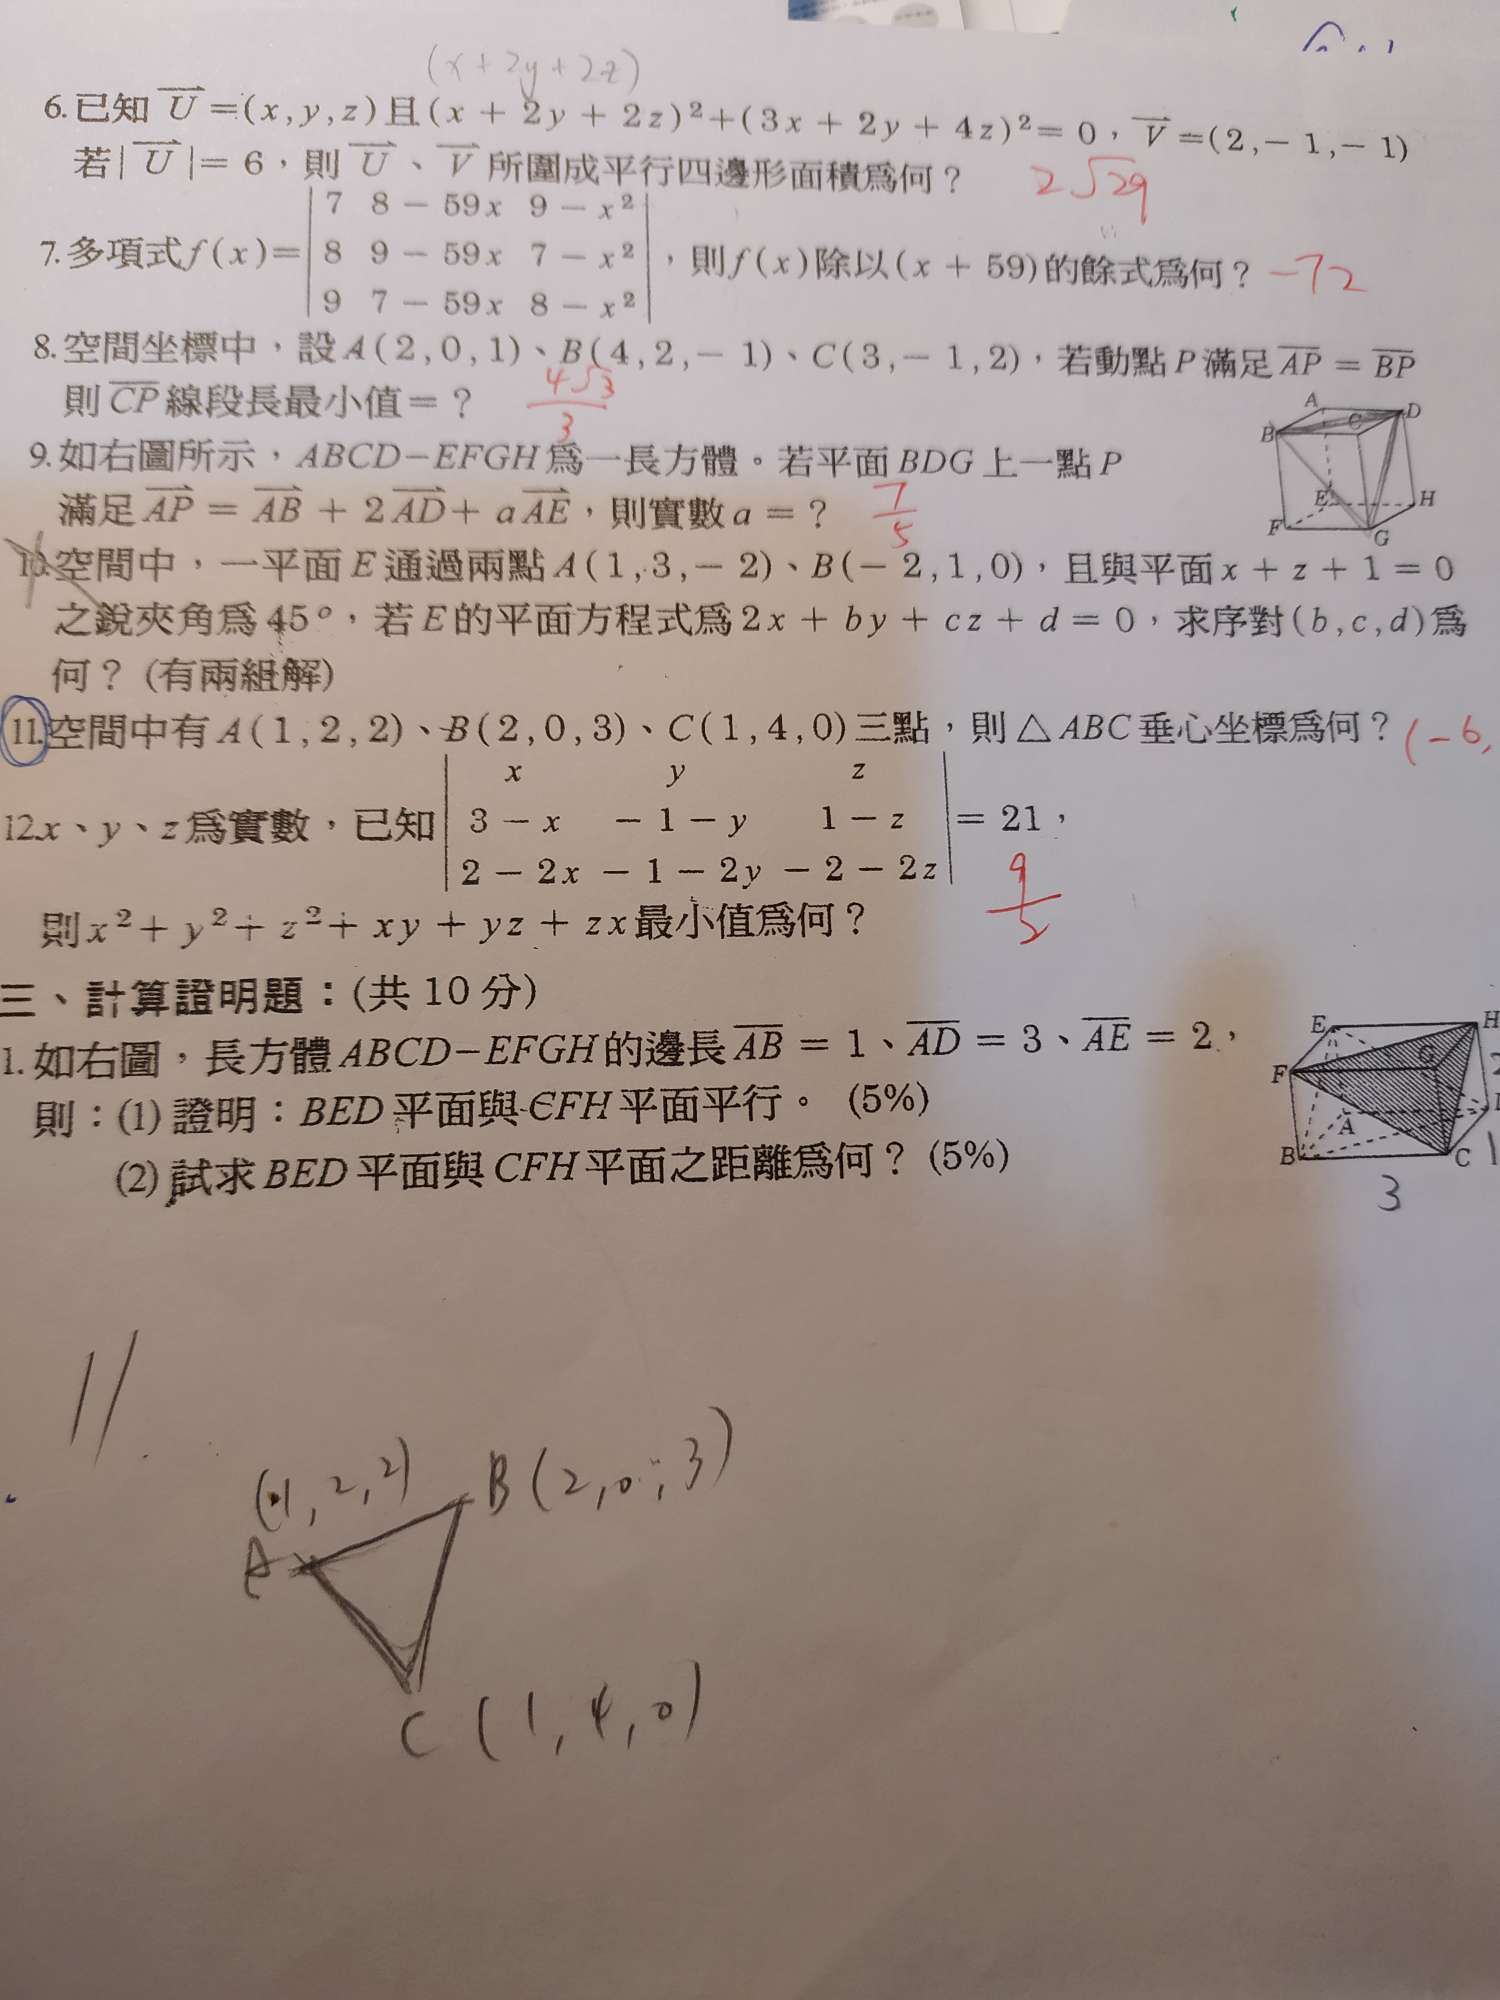 (x+2y+2z)
6.已知 U =(x,y,z)且(x + 2y + 2z)²+(3x + 2y + 4z)²= 0，V =(2,−1,−1)
若| U |= 6，則 U 、 V 所圍成平行四邊形面積為何？ 2√29
7 8 − 59x 9 − x²
7.多項式f(x)= 8 9 − 59x 7 − x² ，則f(x)除以(x + 59)的餘式為何？ −72
9 7 − 59x 8 − x²
8.空間坐標中，設A(2,0,1)、B(4,2,−1)、C(3,−1,2)，若動點P滿足AP = BP
則CP線段長最小值=？ 4√3/3
A D
B C
9.如右圖所示，ABCD−EFGH為一長方體。若平面BDG上一點P
滿足AP = AB + 2AD+ aAE，則實數a =？ 7/5
E H
F G
10.空間中，一平面E通過兩點A(1,3,−2)、B(−2,1,0)，且與平面x + z + 1 = 0
之銳夾角為45°，若E的平面方程式為2x + by + cz + d = 0，求序對(b,c,d)為
何？(有兩組解)
11.空間中有A(1,2,2)、B(2,0,3)、C(1,4,0)三點，則△ABC垂心坐標為何？ (−6,
x y z
12.x、y、z為實數，已知 3 − x −1 − y 1 − z = 21，
2 − 2x −1 − 2y −2 − 2z
9/2
則x²+ y²+ z²+ xy + yz + zx最小值為何？
三、計算證明題：(共10分)
1.如右圖，長方體ABCD−EFGH的邊長AB = 1、AD = 3、AE = 2，
則：(1)證明：BED平面與CFH平面平行。(5%)
(2)試求BED平面與CFH平面之距離為何？(5%)
E H
F G 2
A
B C 1
3
11.
(1,2,2) B(2,0,3)
A
C (1,4,0)